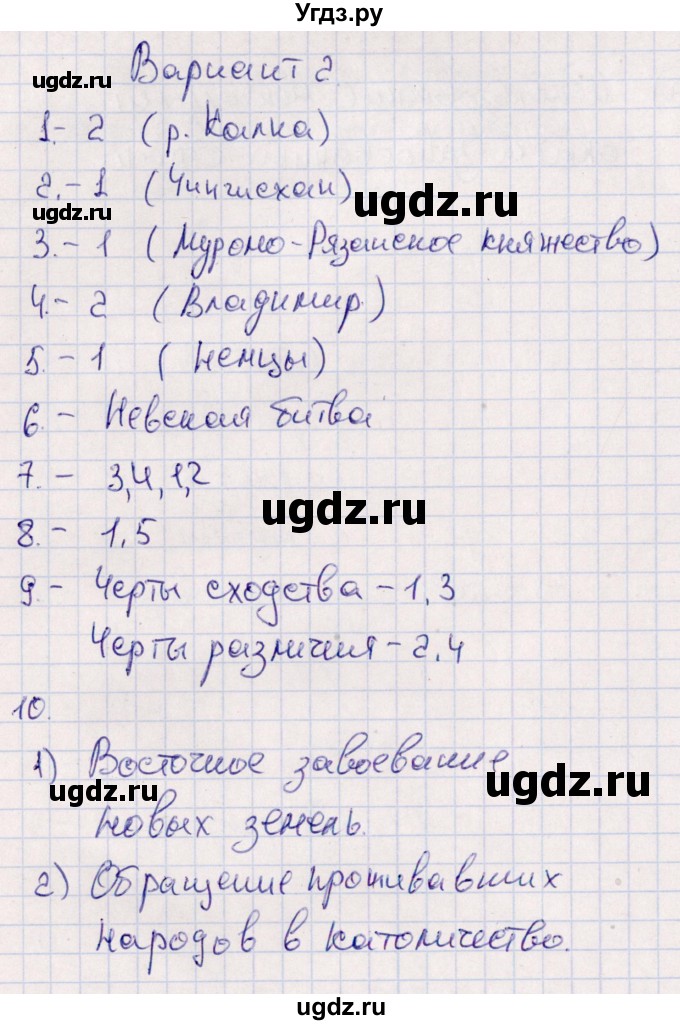 Угдз.ру
Вариант 2.
1.- 2 (р. Калка)
2.- 1 (Чингисхан)
3.- 1 (Муромо-Рязанское княжество)
4.- 2 (Владимир)
5.- 1 (Немцы)
6.- Невская битва
7.- 3,4,1,2
8.- 1,5
9.- Черты сходства - 1,3
Черты различия - 2,4
10.
1) Восточное завоевание
новых земель.
2) Обращение проживавших
народов в католичество.
ugdz.ru
ugdz.ru
ugdz.ru
ugdz.ru
ugdz.ru
ugdz.ru
ugdz.ru
ugdz.ru